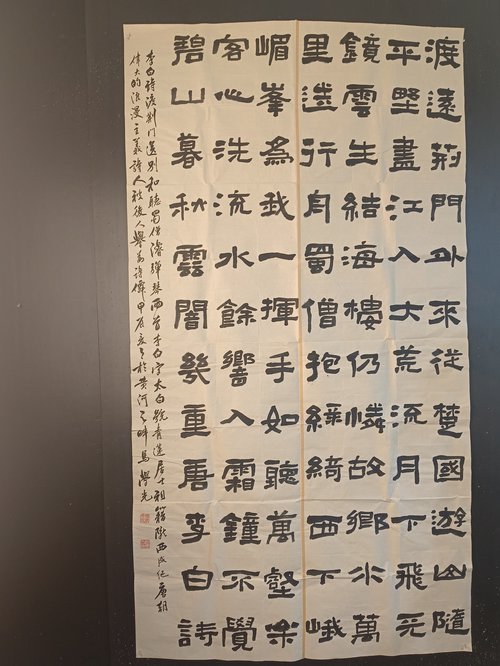 渡遠荊門外來從楚國遊山隨
平野盡江入大荒流月下飛天
鏡雲生結海樓仍憐故鄉水萬
里送行舟蜀僧抱綠綺西下峨
嵋峯為我一揮手如聽萬壑松
客心洗流水餘響入霜鐘不覺
碧山暮秋雲闇幾重唐李白詩
李白詩渡荊門送別和聽蜀僧濬彈琴兩首李白字太白號青蓮居士祖籍隴西成紀唐朝
偉大的浪漫主義詩人被後人譽為詩僊甲辰夏月於黃河之畔馬學光